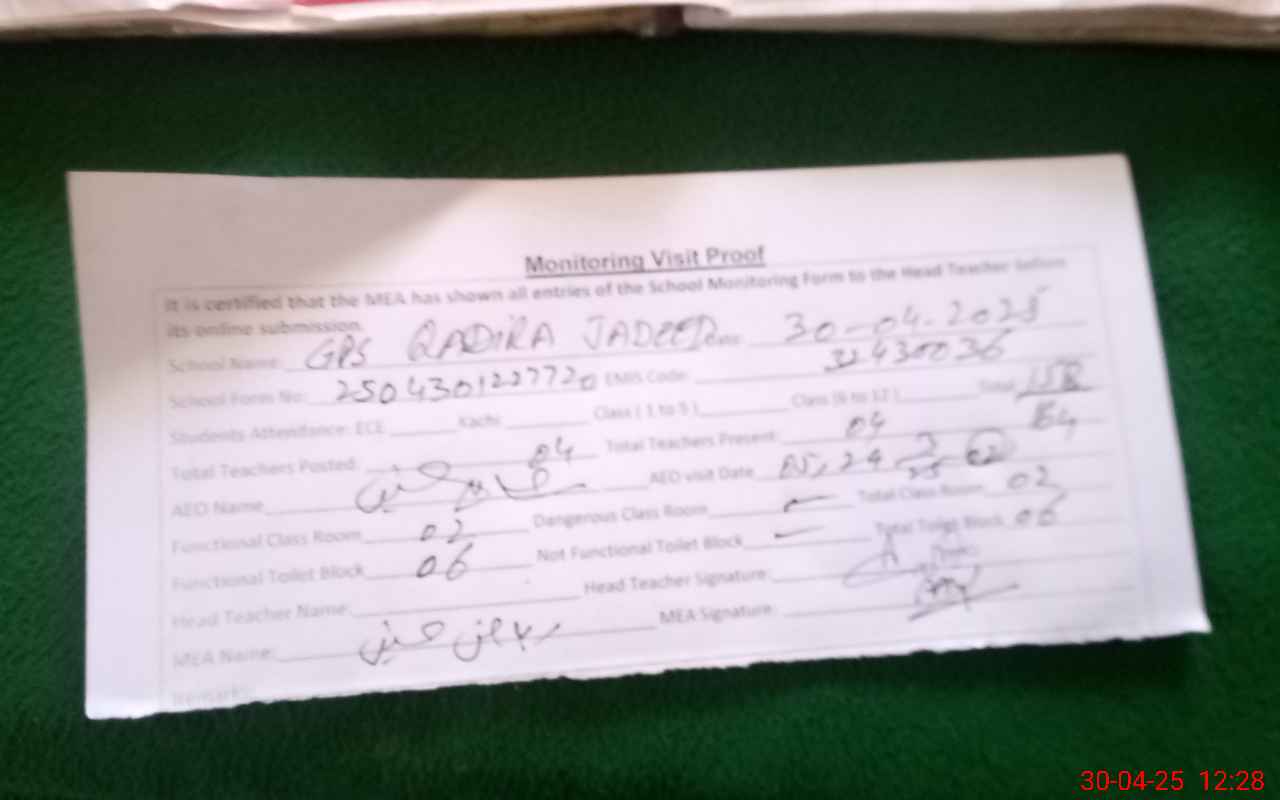 Monitoring Visit Proof
It is certified that the MEA has shown all entries of the School Monitoring Form to the Head Teacher before
its online submission.
School Name: GPS QADIRA JADEED Date: 30-04-2025
School Form No: 2504301227720 EMIS Code: 32430036
Students Attendance: ECE Kachi Class ( 1 to 5 ) Class (6 to 12 ) Total
Total Teachers Posted: 04 Total Teachers Present: 04
AEO Name حسین AEO visit Date 24 3 25 02
Functional Class Room 02 Dangerous Class Room Total Class Room 02
Functional Toilet Block 06 Not Functional Toilet Block Total Toilet Block 06
Head Teacher Name: Head Teacher Signature:
MEA Name: حسین MEA Signature:
Remarks:
30-04-25 12:28